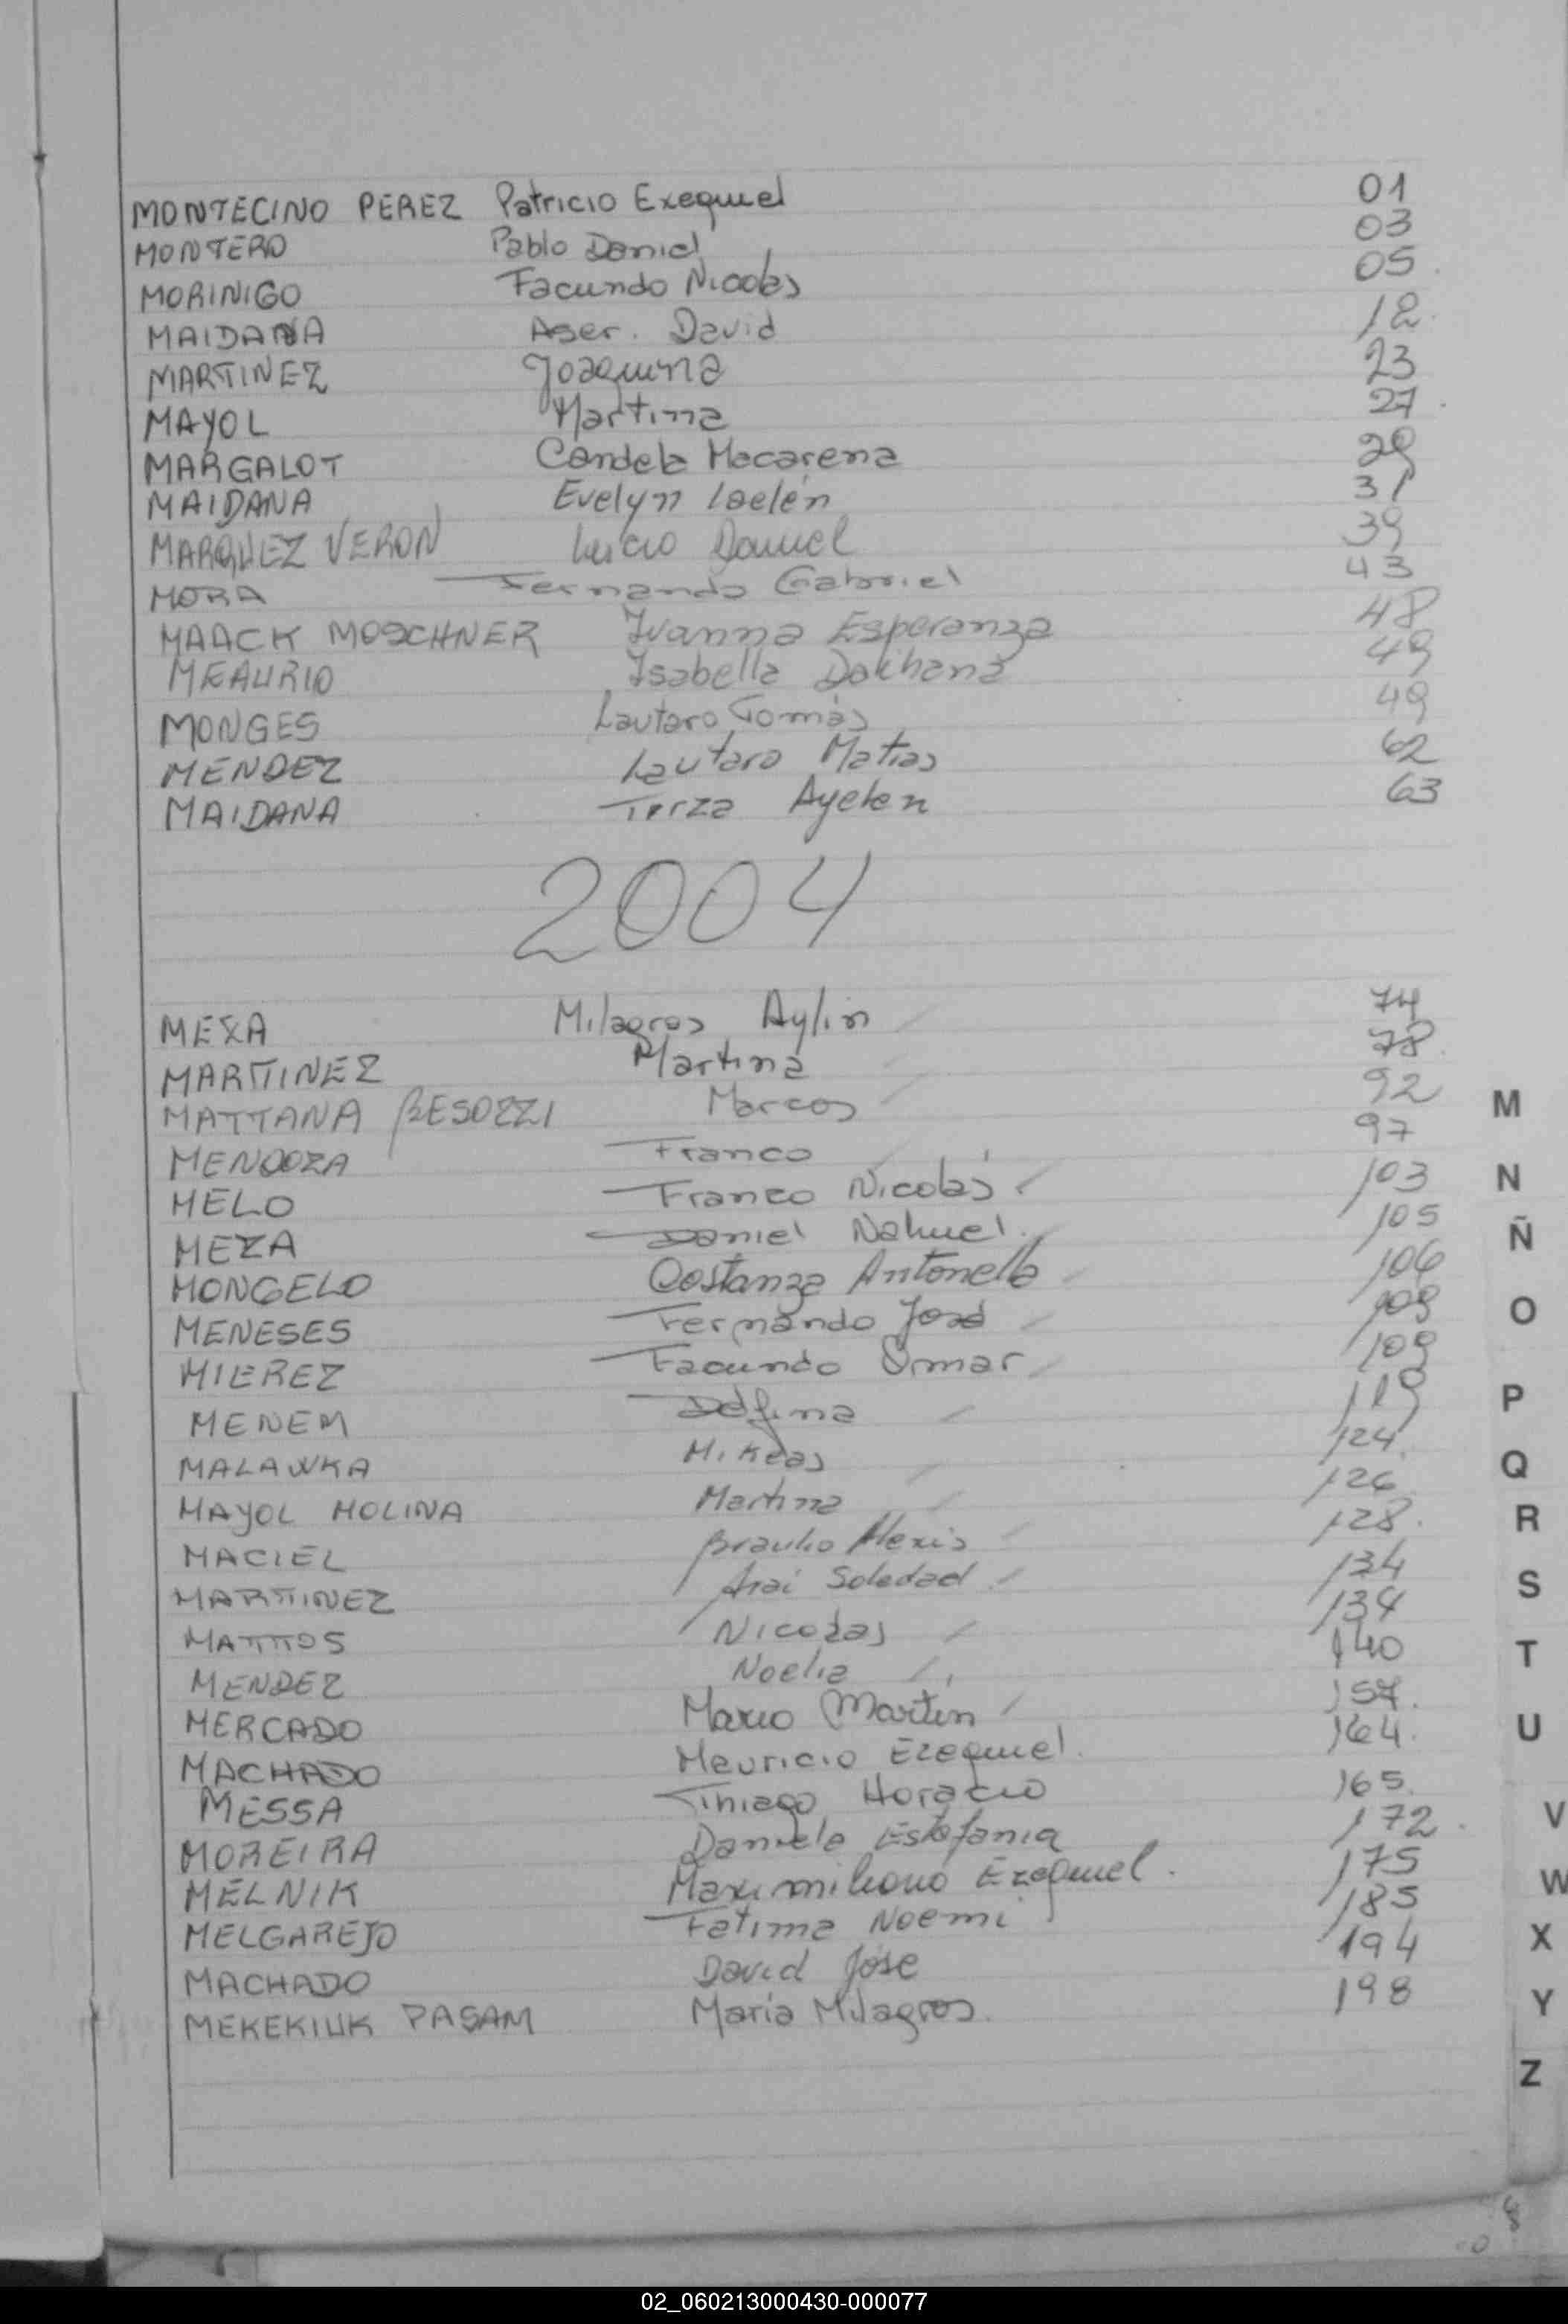 MONTECINO PEREZ Patricio Exequiel 01
MONTERO Pablo Daniel 03
MORINIGO Facundo Nicolas 05
MAIDANA Aser. David 18
MARTINEZ Joaquina 23
MAYOL Martina 27
MARGALOT Candela Macarena 29
MAIDANA Evelyn Laelén 31
MARQUEZ VERON Lucio Daniel 39
MORA Fernando Gabriel 43
MAACK MOSCHNER Ivanna Esperanza 48
MEAURIO Isabella Dakhana 49
MONGES Lautaro Tomás 49
MENDEZ Lautaro Matias 62
MAIDANA Tirza Ayelen 63
2004
MEZA Milagros Aylin 74
MARTINEZ Martina 78
MATTANA BESOZZI Marcos 92
MENDOZA Franco 97
MELO Franco Nicolás 103
MEZA Daniel Nahuel 105
MONGELO Costanza Antonella 106
MENESES Fernando José 109
MIEREZ Facundo Omar 109
MENEM Delfina 119
MALAWKA Mikeas 124
MAYOL MOLINA Martina 126
MACIEL Braulio Alexis 128
MARTINEZ Anai Soledad 134
MATTOS Nicolas 134
MENDEZ Noelia 140
MERCADO Mario Martin 157
MACHADO Mauricio Ezequiel 164
MESSA Thiago Horacio 165
MOREIRA Daniela Estefania 172
MELNIK Maximiliano Ezequiel 175
MELGAREJO Fatima Noemi 185
MACHADO David José 194
MEKEKIUK PASAM Maria Milagros 198
M
N
Ñ
O
P
Q
R
S
T
U
V
W
X
Y
Z
02_060213000430-000077